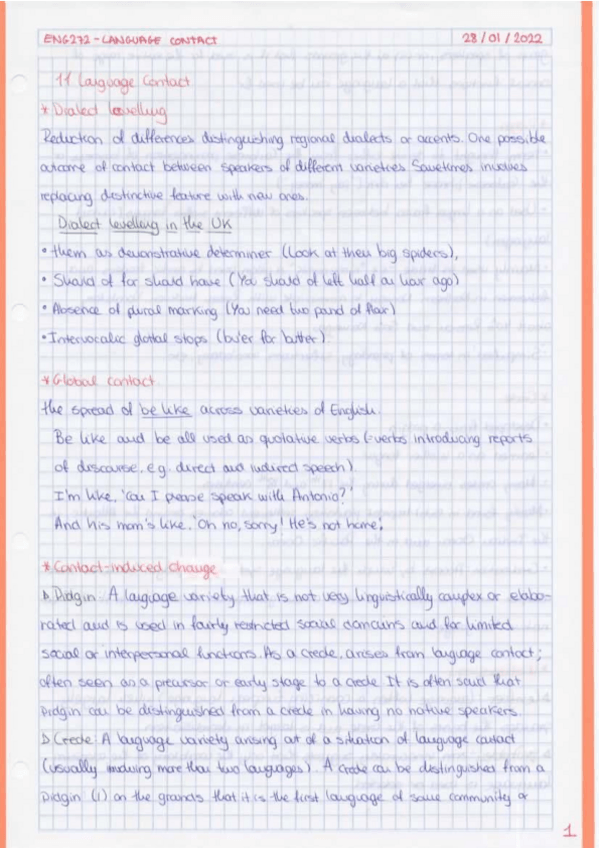 ENG272 - LANGUAGE CONTACT 28/01/2022
11 Language Contact
* Dialect levelling
Reduction of differences distinguishing regional dialects or accents. One possible
outcome of contact between speakers of different varieties. Sometimes involves
replacing distinctive feature with new ones.
Dialect levelling in the UK
• them as demonstrative determiner (Look at them big spiders),
• Should of for should have (You should of left half an hour ago)
• Absence of plural marking (You need two pound of flour)
• Intervocalic glottal stops (bu'er for butter)
* Global contact
the spread of be like across varieties of English.
Be like and be all used as quotative verbs (=verbs introducing reports
of discourse, e.g. direct and indirect speech)
I'm like, 'Can I please speak with Antonio?'
And his mom's like, 'Oh no, sorry! He's not home'.
* Contact-induced change
▷ Pidgin: A language variety that is not very linguistically complex or elabo-
rated and is used in fairly restricted social domains and for limited
social or interpersonal functions. As a creole, arises from language contact;
often seen as a precursor or early stage to a creole. It is often said that
pidgin can be distinguished from a creole in having no native speakers.
▷ Creole: A language variety arising out of a situation of language contact
(usually involving more than two languages). A creole can be distinguished from a
pidgin (1) on the grounds that it is the first language of some community or
1